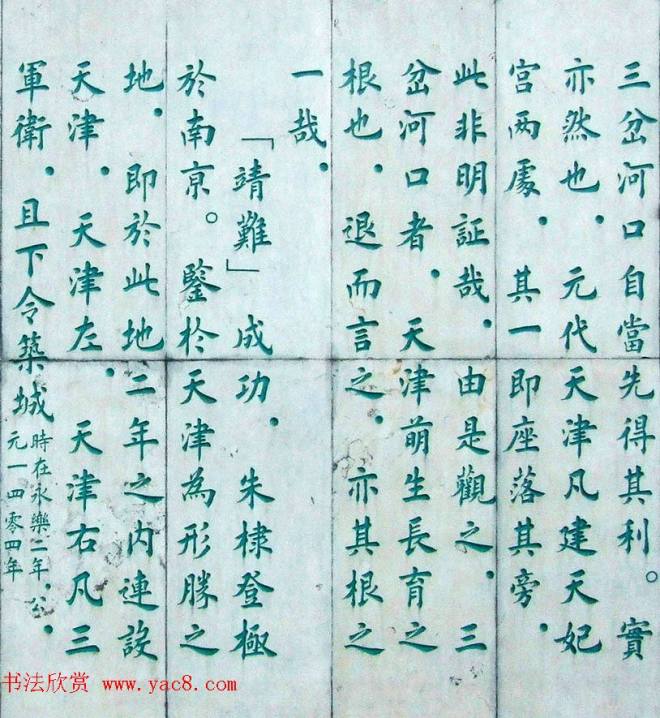 三岔河口自當先得其利。實
亦然也，元代天津凡建天妃
宮两處，其一即座落其旁，
此非明証哉，由是觀之，三
岔河口者，天津萌生長育之
根也，退而言之，亦其根之
一哉，
「靖難」成功，朱棣登極
於南京。鑒於天津為形勝之
地，即於此地二年之内連設
天津，天津左，天津右凡三
軍衛，且下令築城時在永樂二年，公
元一四零四年，
书法欣赏 www.yac8.com